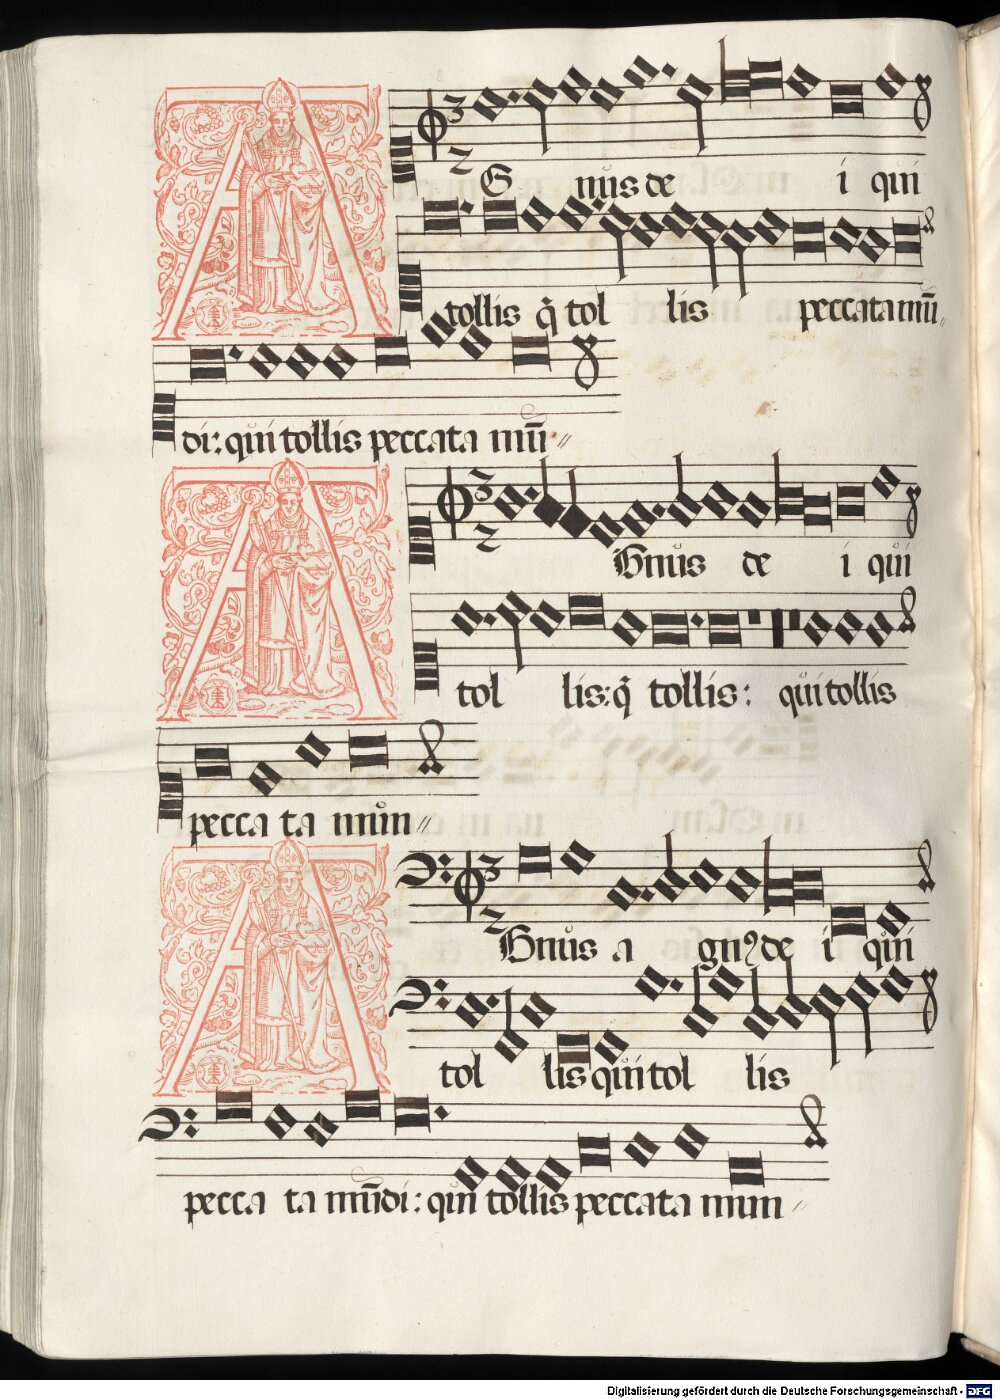 AG nus de i qui
tollis q̃ tol lis peccata mũ
di: qui tollis peccata mũ
AGnus de i qui
tol lis: q̃ tollis: qui tollis
pecca ta mun
AGnus a gnꝰ de i qui
tol lis qui tol lis
pecca ta mũdi: qui tollis peccata mun
Digitalisierung gefördert durch die Deutsche Forschungsgemeinschaft - DFG